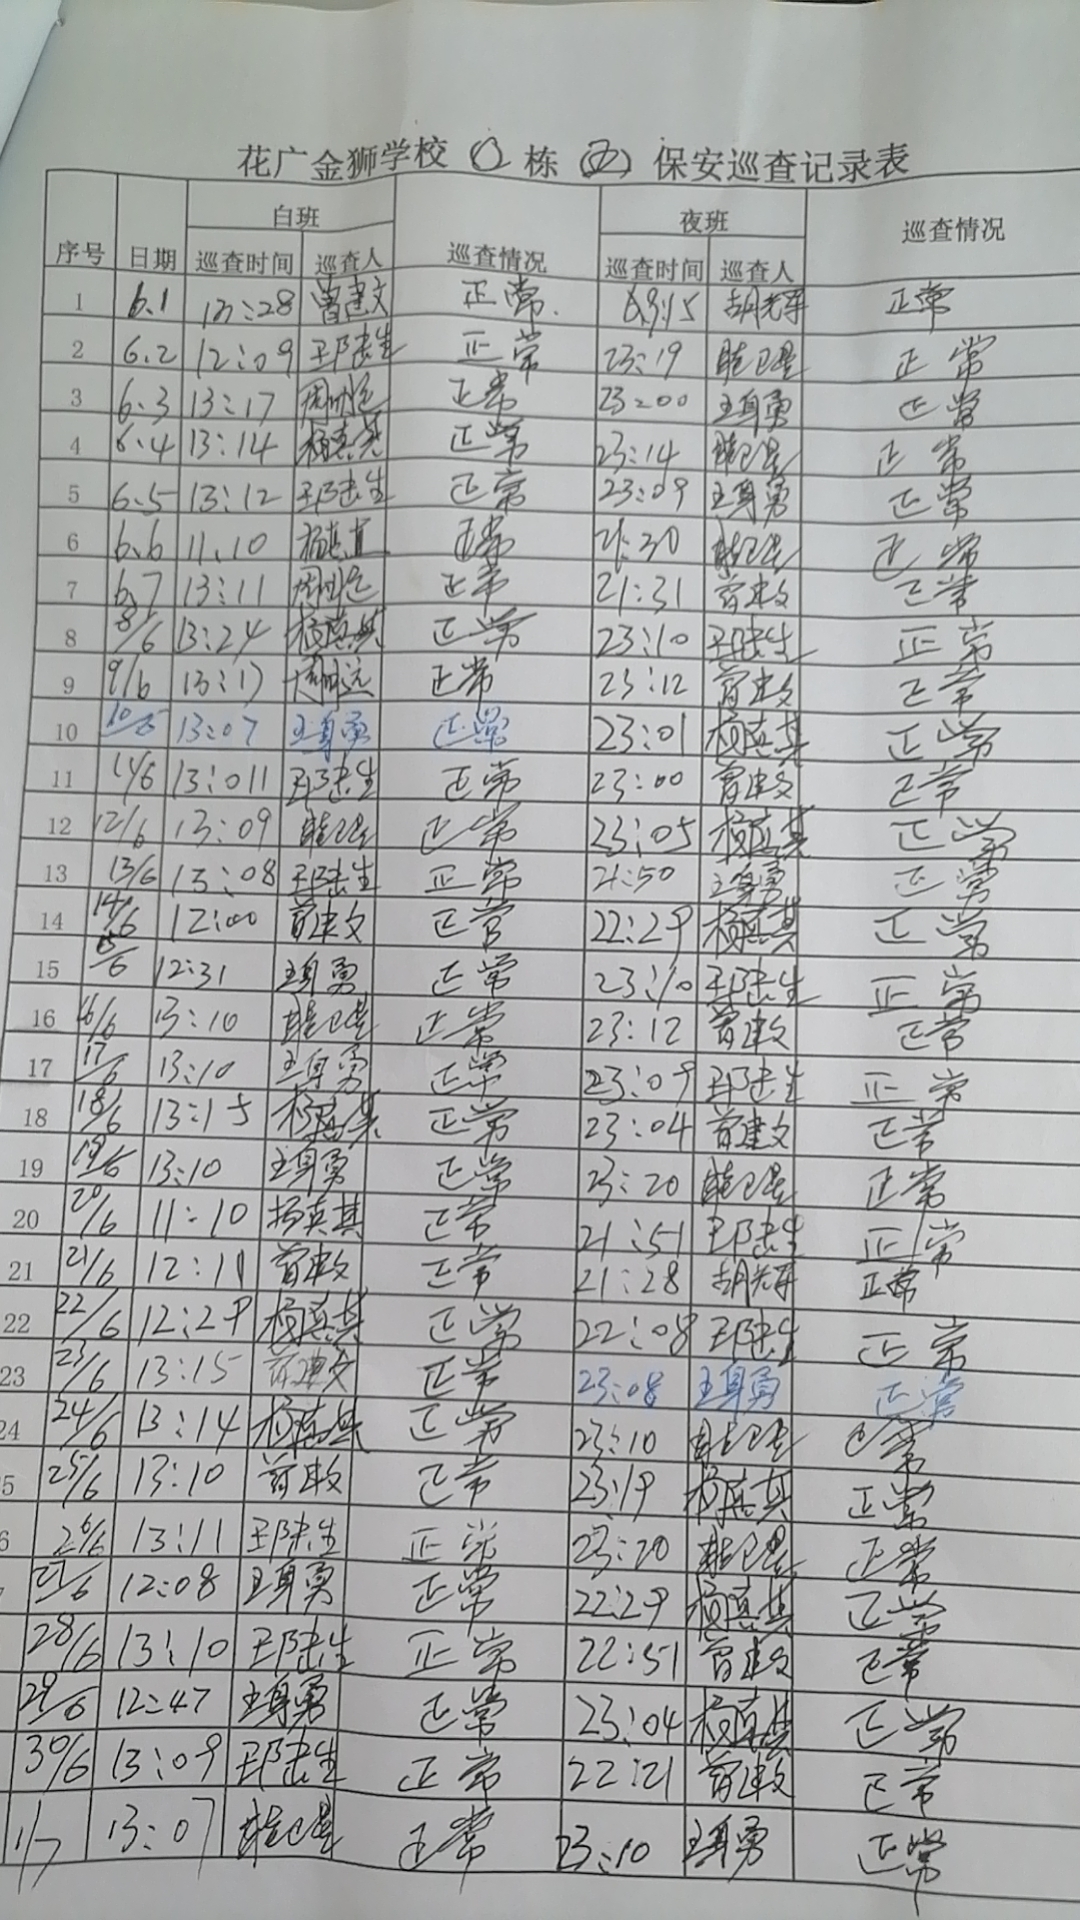 花广金狮学校 栋 (西) 保安巡查记录表
序号 日期 白班 巡查情况 夜班 巡查情况
巡查时间 巡查人 巡查时间 巡查人
1 6.1 13:28 曾建文 正常. 正常
2 6.2 12:09 正常 23:19 正常
3 6.3 13:17 正常 23:00 王身勇 正常
4 6.4 13:14 杨真其 正常 23:14 正常
5 6.5 13:12 正常 23:09 王身勇 正常
6 6.6 11.10 正常 21:30 正常
7 6.7 13:11 正常 21:31 曾建文 正常
8 8/6 13:24 杨真其 正常 23:10 正常
9 9/6 13:17 正常 23:12 曾建文 正常
10 10/6 13:07 王身勇 正常 23:01 杨真其 正常
11 11/6 13:011 正常 23:00 曾建文 正常
12 12/6 13:09 正常 23:05 杨真其 正常
13 13/6 13:08 正常 21:50 王身勇 正常
14 14/6 12:00 曾建文 正常 22:29 杨真其 正常
15 15/6 12:31 王身勇 正常 23:10 正常
16 16/6 13:10 正常 23:12 曾建文 正常
17 17/6 13:10 王身勇 正常 23:09 正常
18 18/6 13:15 杨真其 正常 23:04 曾建文 正常
19 19/6 13:10 王身勇 正常 23:20 正常
20 20/6 11:10 杨真其 正常 21:51 正常
21 21/6 12:11 曾建文 正常 21:28 正常
22 22/6 12:29 杨真其 正常 22:08 正常
23 23/6 13:15 曾建文 正常 23:08 王身勇 正常
24 24/6 13:14 杨真其 正常 23:10 正常
5 25/6 13:10 曾建文 正常 23:19 杨真其 正常
6 26/6 13:11 正常 23:20 正常
27/6 12:08 王身勇 正常 22:29 杨真其 正常
28/6 13:10 正常 22:51 曾建文 正常
29/6 12:47 王身勇 正常 23:04 杨真其 正常
30/6 13:09 正常 22:21 曾建文 正常
1/7 13:07 正常 23:10 王身勇 正常